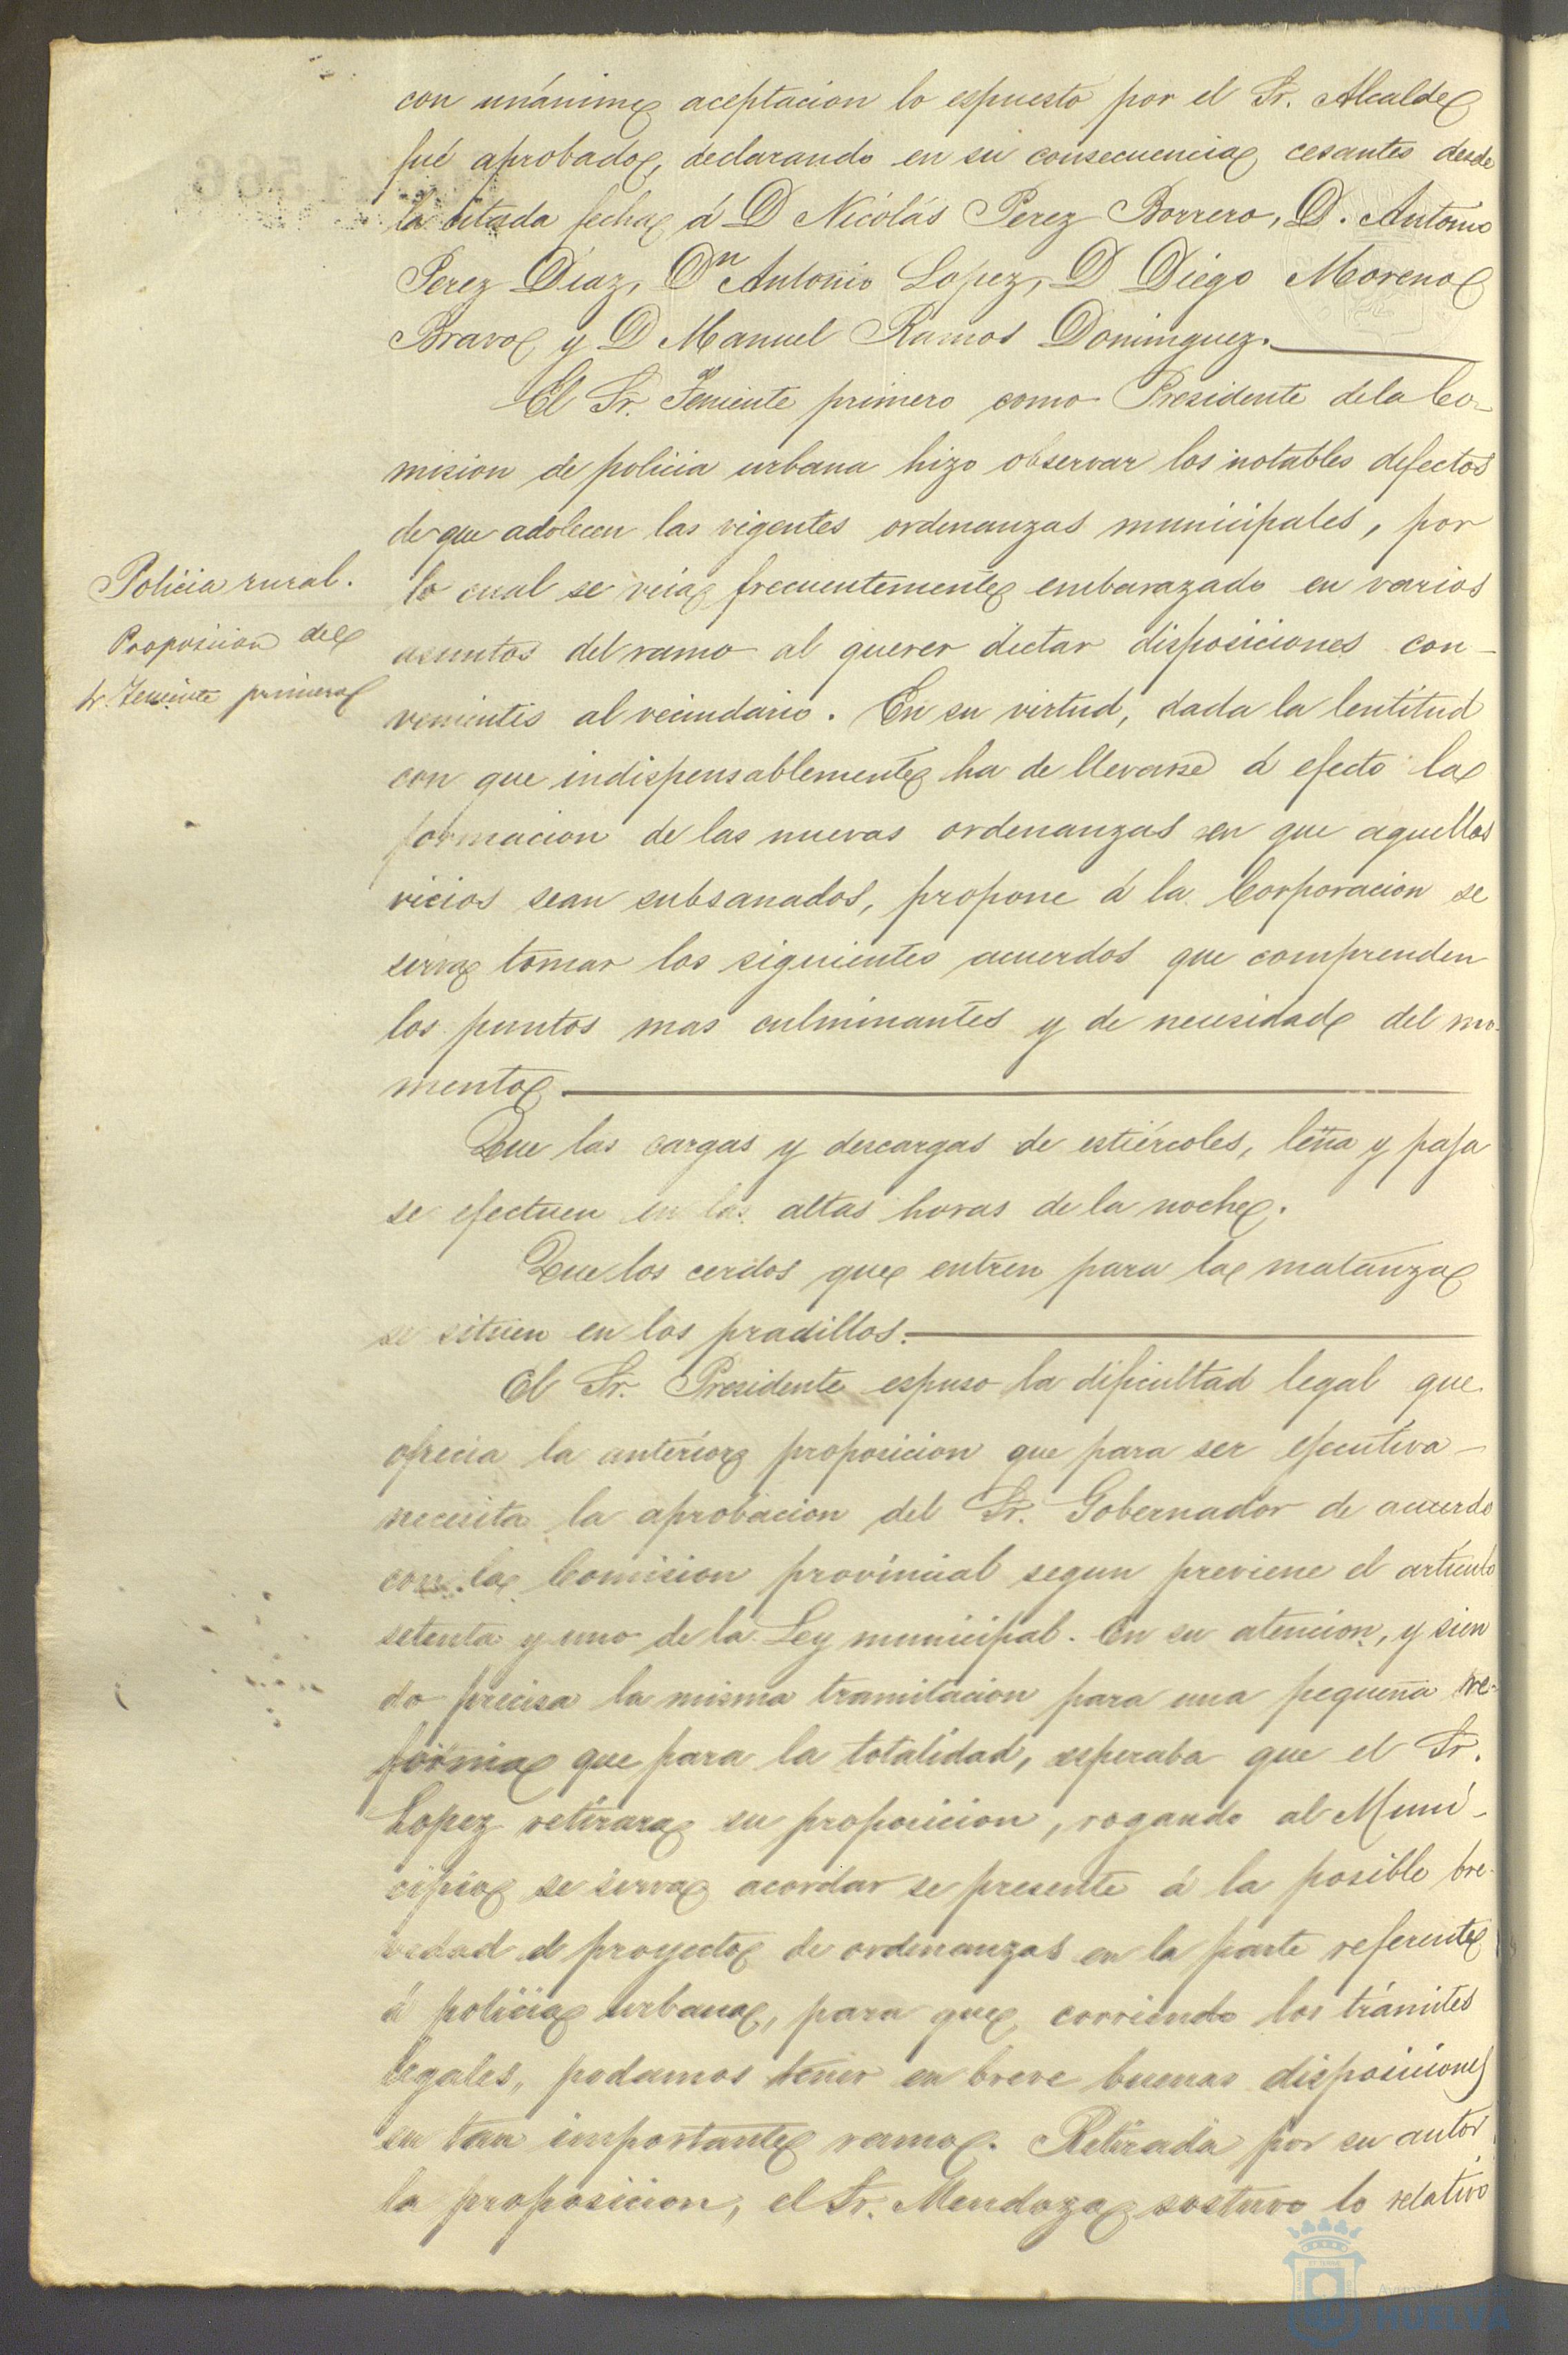 con unánime aceptacion lo espuesto por el Sr. Alcalde
fué aprobado, declarando en su consecuencia cesantes desde
la citada fecha á D Nicolás Perez Borrero, D. Antonio
Perez Diaz, Dn Antonio Lopez, D Diego Moreno
Bravo y D Manuel Ramos Dominguez.
El Sr. Teniente primero como Presidente de la Co-
mision de policia urbana hizo observar los notables defectos
de que adolecen las vigentes ordenanzas municipales, por
Policia rural.
lo cual se veia frecuentemente embarazado en varios
Proposicion del
asuntos del ramo al querer dictar disposiciones con-
Sr. Teniente primero
venientes al vecindario. En su virtud, dada la lentitud
con que indispensablemente ha de llevarse á efecto la
formacion de las nuevas ordenanzas en que aquellos
vicios sean subsanados, propone á la Corporacion se
sirva tomar los siguientes acuerdos que comprenden
los puntos mas culminantes y de necesidad del mo-
mento.
Que las cargas y descargas de estiércoles, leña y paja
se efectuen en las altas horas de la noche.
Que los cerdos que entren para la matanza
se situen en los pradillos.
El Sr. Presidente espuso la dificultad legal que
ofrecia la anterior proposicion que para ser ejecutiva
necesita la aprobacion del Sr. Gobernador de acuerdo
con la Comision provincial segun previene el artículo
setenta y uno de la Ley municipal. En su atencion, y sien
do precisa la misma tramitacion para una pequeña re-
forma que para la totalidad, esperaba que el Sr.
Lopez retirara su proposicion, rogando al Muni-
cipio se sirva acordar se presente á la posible bre-
vedad el proyecto de ordenanzas en la parte referente
á policia urbana, para que, corriendo los trámites
legales, podamos tener en breve buenas disposiciones
en tan importante ramo. Retirada por su autor
la proposicion, el Sr. Mendoza sostuvo lo relativo
HUELVA